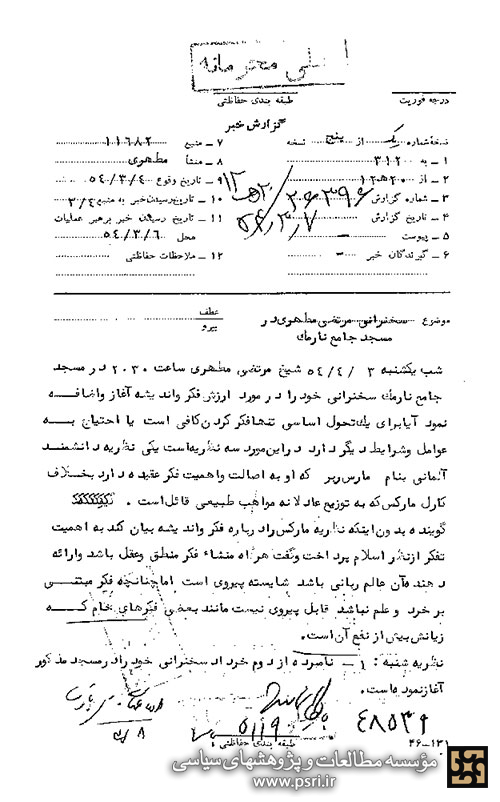 خیلی محرمانه
درجه فوریت
طبقه بندی حفاظتی
گزارش خبر
نسخه شماره یک از پنج نسخه
۱ – به ۳۱۲
۲ – از ۲۰ﻫ۱۲
۳ – شماره گزارش
۴ – تاریخ گزارش
۵ – پیوست –
۶ – گیرندگان خبر –
۷ – منبع ۱۱۶۸۲
۸ – منشأ مطهری
۹ – تاریخ وقوع ۵۴/۳/۴
۱۰ – تاریخ رسیدن خبر به منبع ۳/۴
۱۱ – تاریخ رسیدن خبر برهبر عملیات
محل ۵۴/۳/۶
۱۲ – ملاحظات حفاظتی
موضوع سخنرانی مرتضی مطهری در
مسجد جامع نارمک
عطف
پیرو
شب یکشنبه ۳ /۴/ ۵۴ شیخ مرتضی مطهری ساعت ۲۰۳۰ در مسجد
جامع نارمک سخنرانی خود را در مورد ارزش فکر واندیشه آغاز واضافه
نمود آیابرای یک تحول اساسی تنهافکرکردن کافی است یا احتیاج به
عوامل وشرایط دیگر دارد دراین مورد سه نظریه است یکی نظریه دانشمند
آلمانی بنام مارس ربر که او به اصالت واهمیت فکر عقیده دارد بخلاف
کارل مارکس که به توزیع عادلانه مواهب طبیعی قائل است .
گوینده بدون اینکه نظریه مارکس راد رباره فکر واندیشه بیان کند به اهمیت
تفکر ازنظر اسلام پرداخت وگفت هرگاه منشاء فکر منطق وعقل باشد وارائه
دهنده آن عالم ربانی باشد شایسته پیروی است اماچنانچه فکر مبتنی
بر خرد و علم نباشد قابل پیروی نیست مانند بعضی فکرهای خام که
زیانش بیش از نفع آن است.
نظریه شنبه : ۱ – نامبرده از دوم خرداد سخنرانی خود را د رمسجد مذکور
آغازنموده است.
۴۸۵۳۹
طبقه بندی حفاظتی
۴۶–۱۳۱
مؤسسه مطالعات و پژوهشهای سیاسی
www.psri.ir